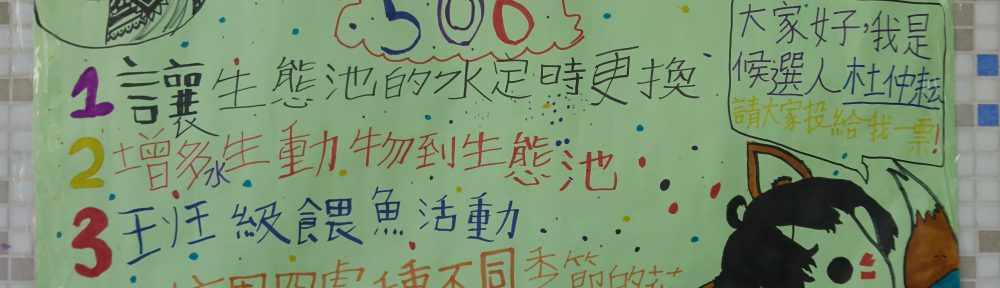 1 讓生態池的水定時更換
2 增多水生動物到生態池
3 班級餵魚活動
四處種不同季節的花
大家好,我是
候選人杜仲耘
請大家投給我一票!